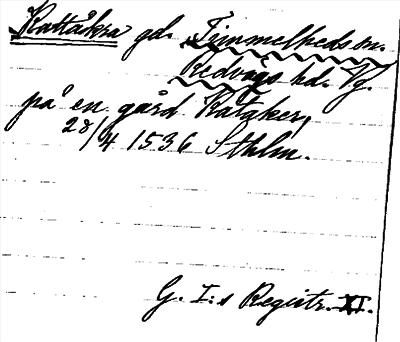 Kattåkra gd. Timmelheds sn.
Redvägs hd. Vg.
på en gård Kåtaker,
28/4 1536 Sthlm.
G. I:s Registr. XI.